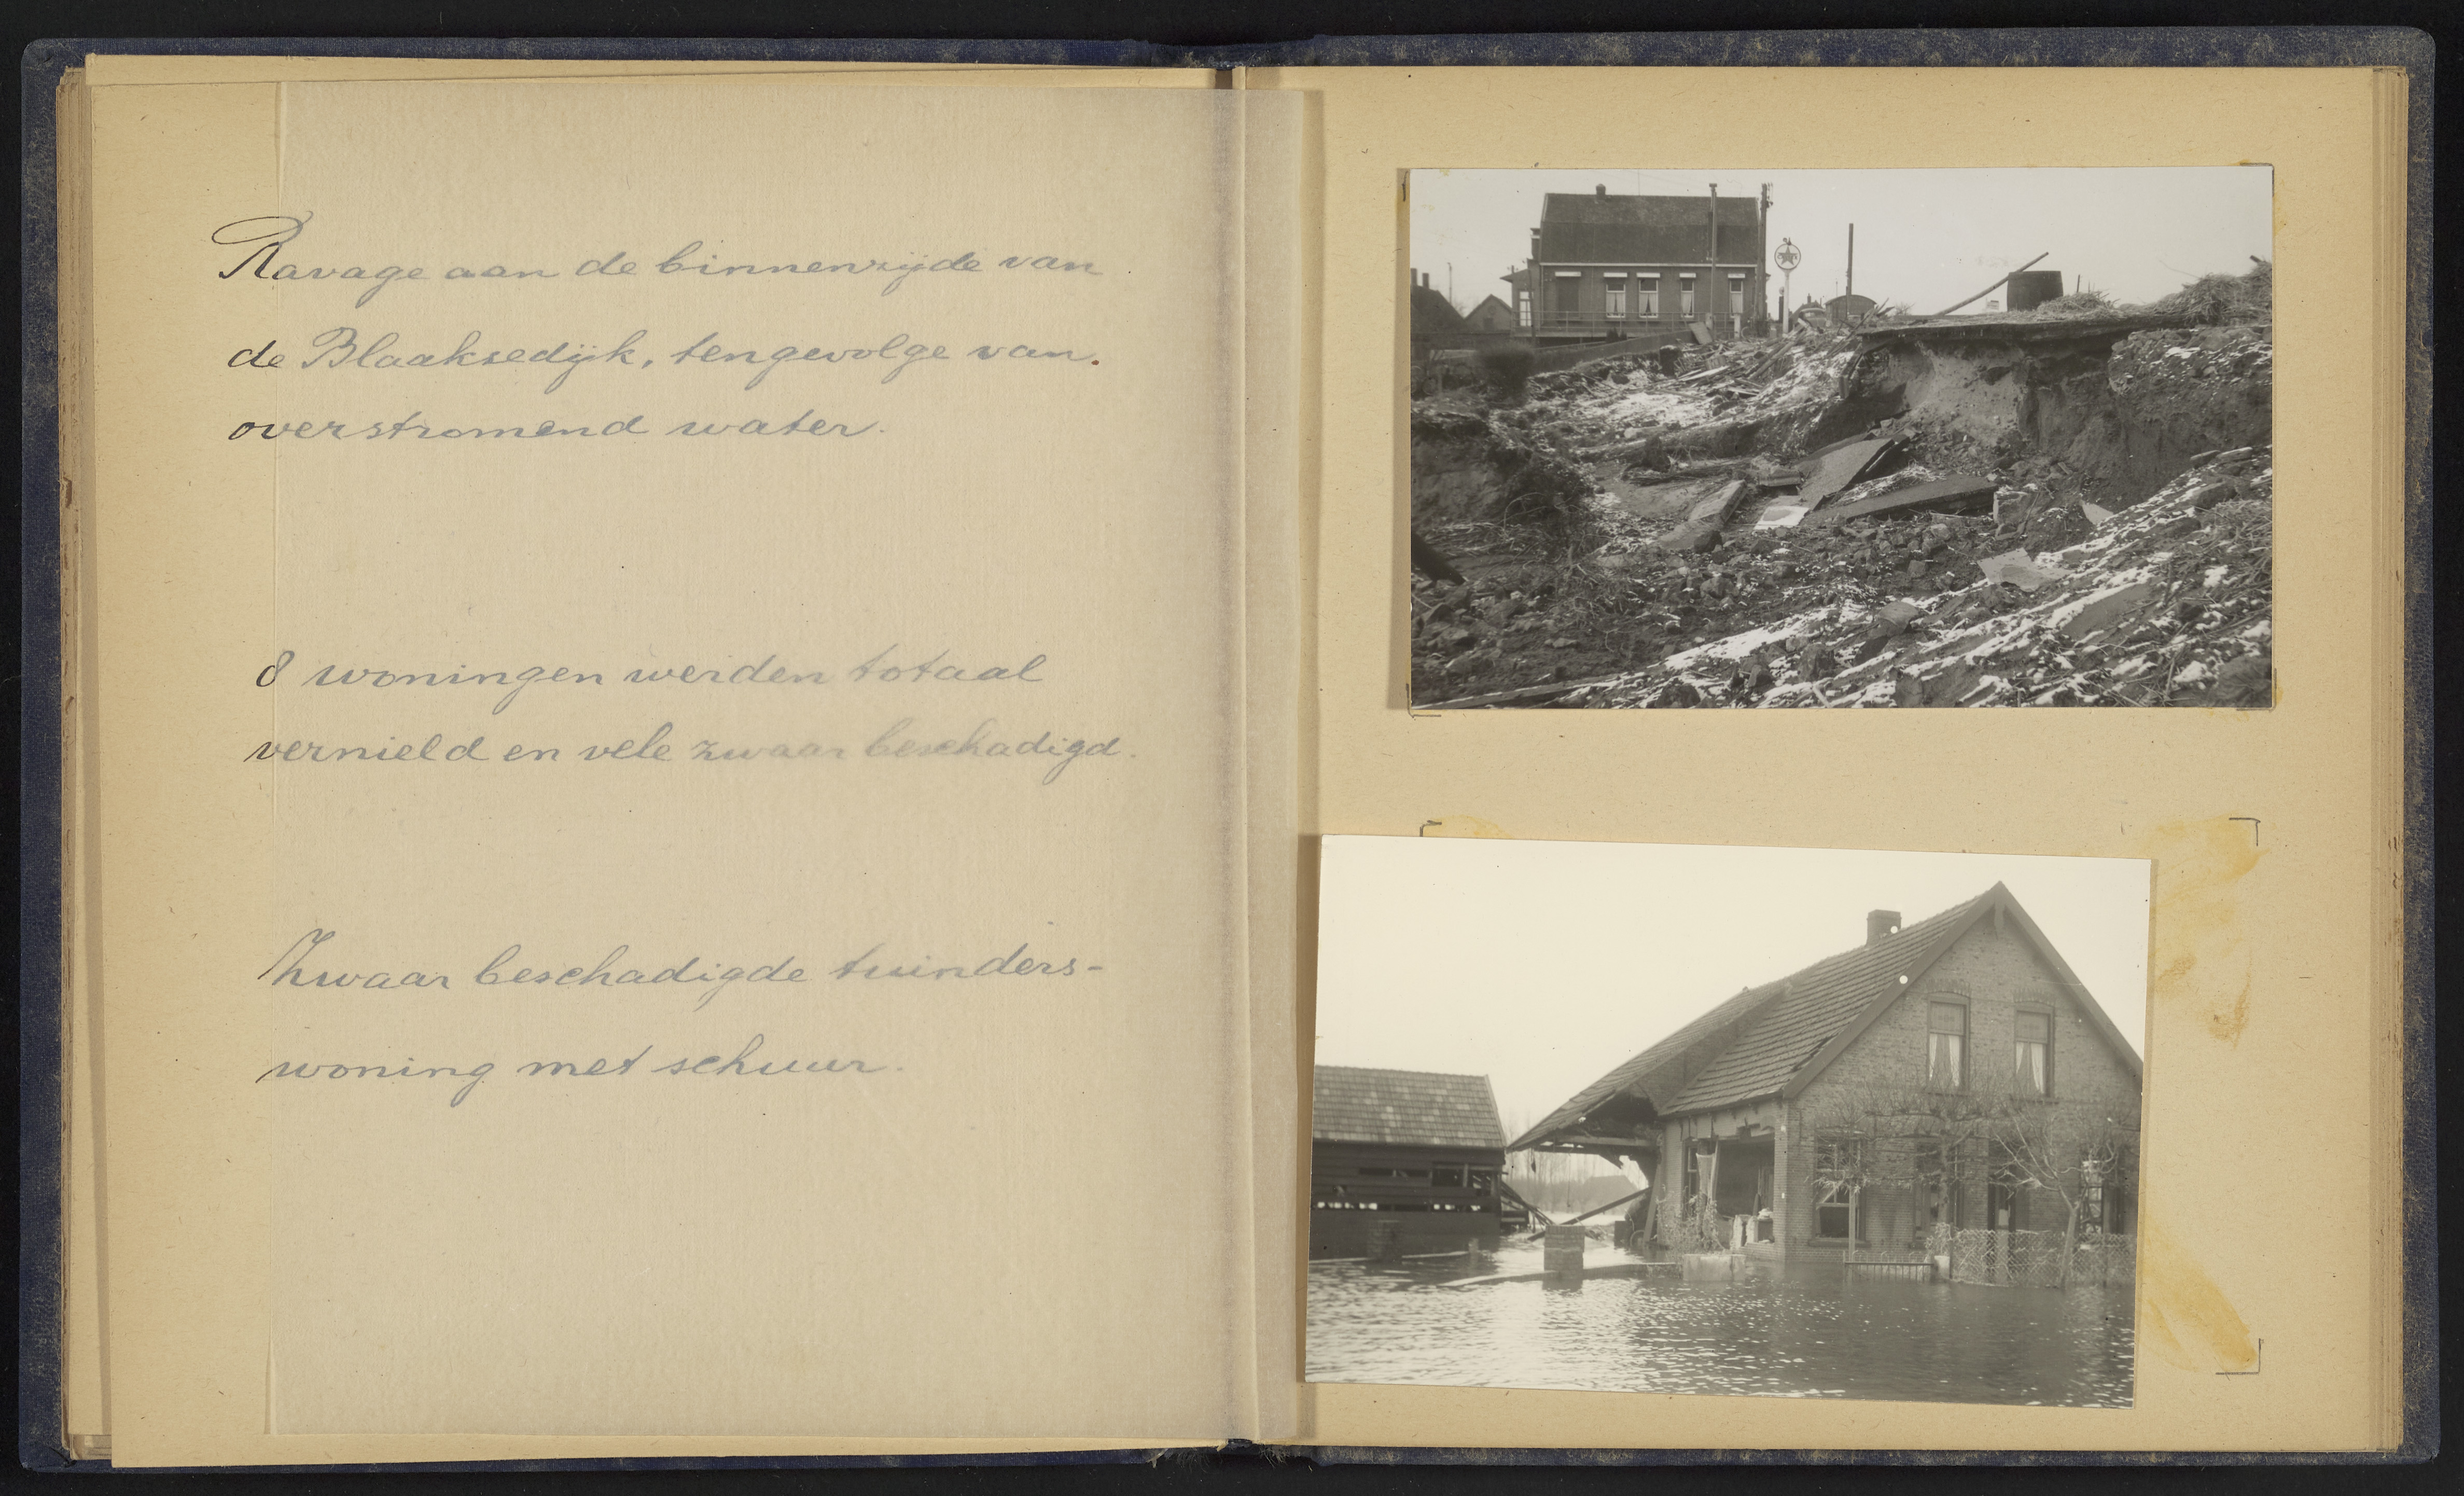 Ravage aan de binnenzijde van
de Blaaksedijk, tengevolge van.
overstromend water.
8 woningen werden totaal
vernield en vele zwaar beschadigd.
Zwaar beschadigde tuinders-
woning met schuur.